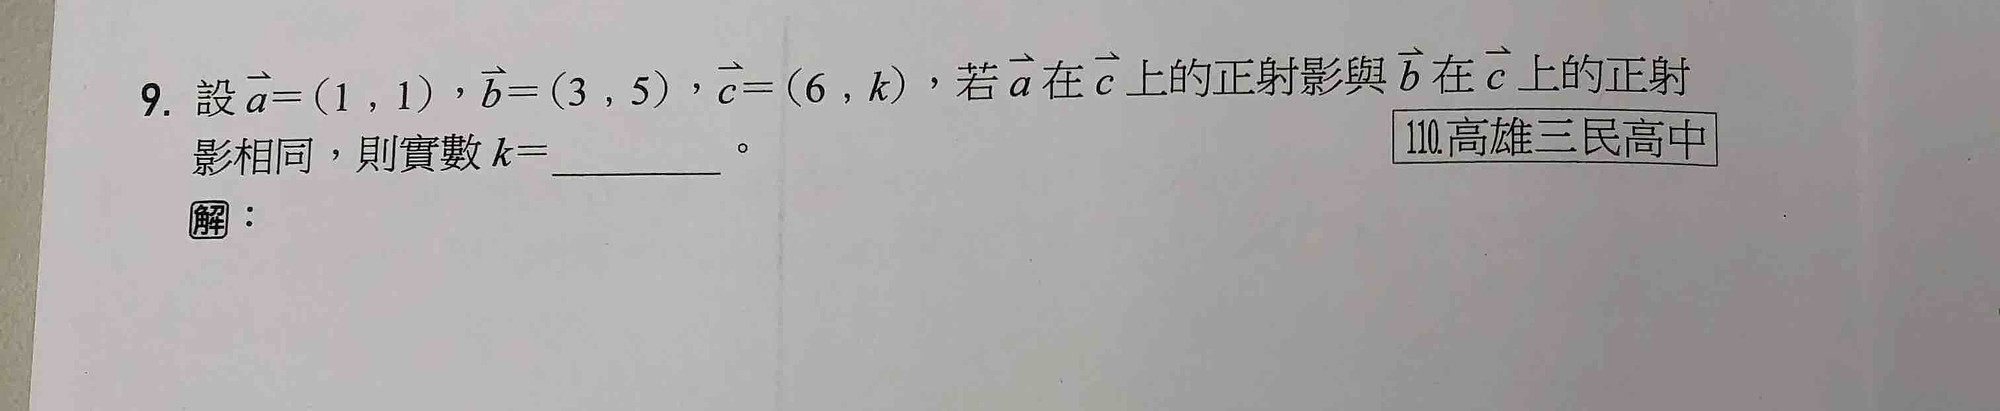 9. 設 a⃗=(1,1),b⃗=(3,5),c⃗=(6,k),若 a⃗ 在 c⃗ 上的正射影與 b⃗ 在 c⃗ 上的正射
影相同,則實數 k=________。
110.高雄三民高中
解: